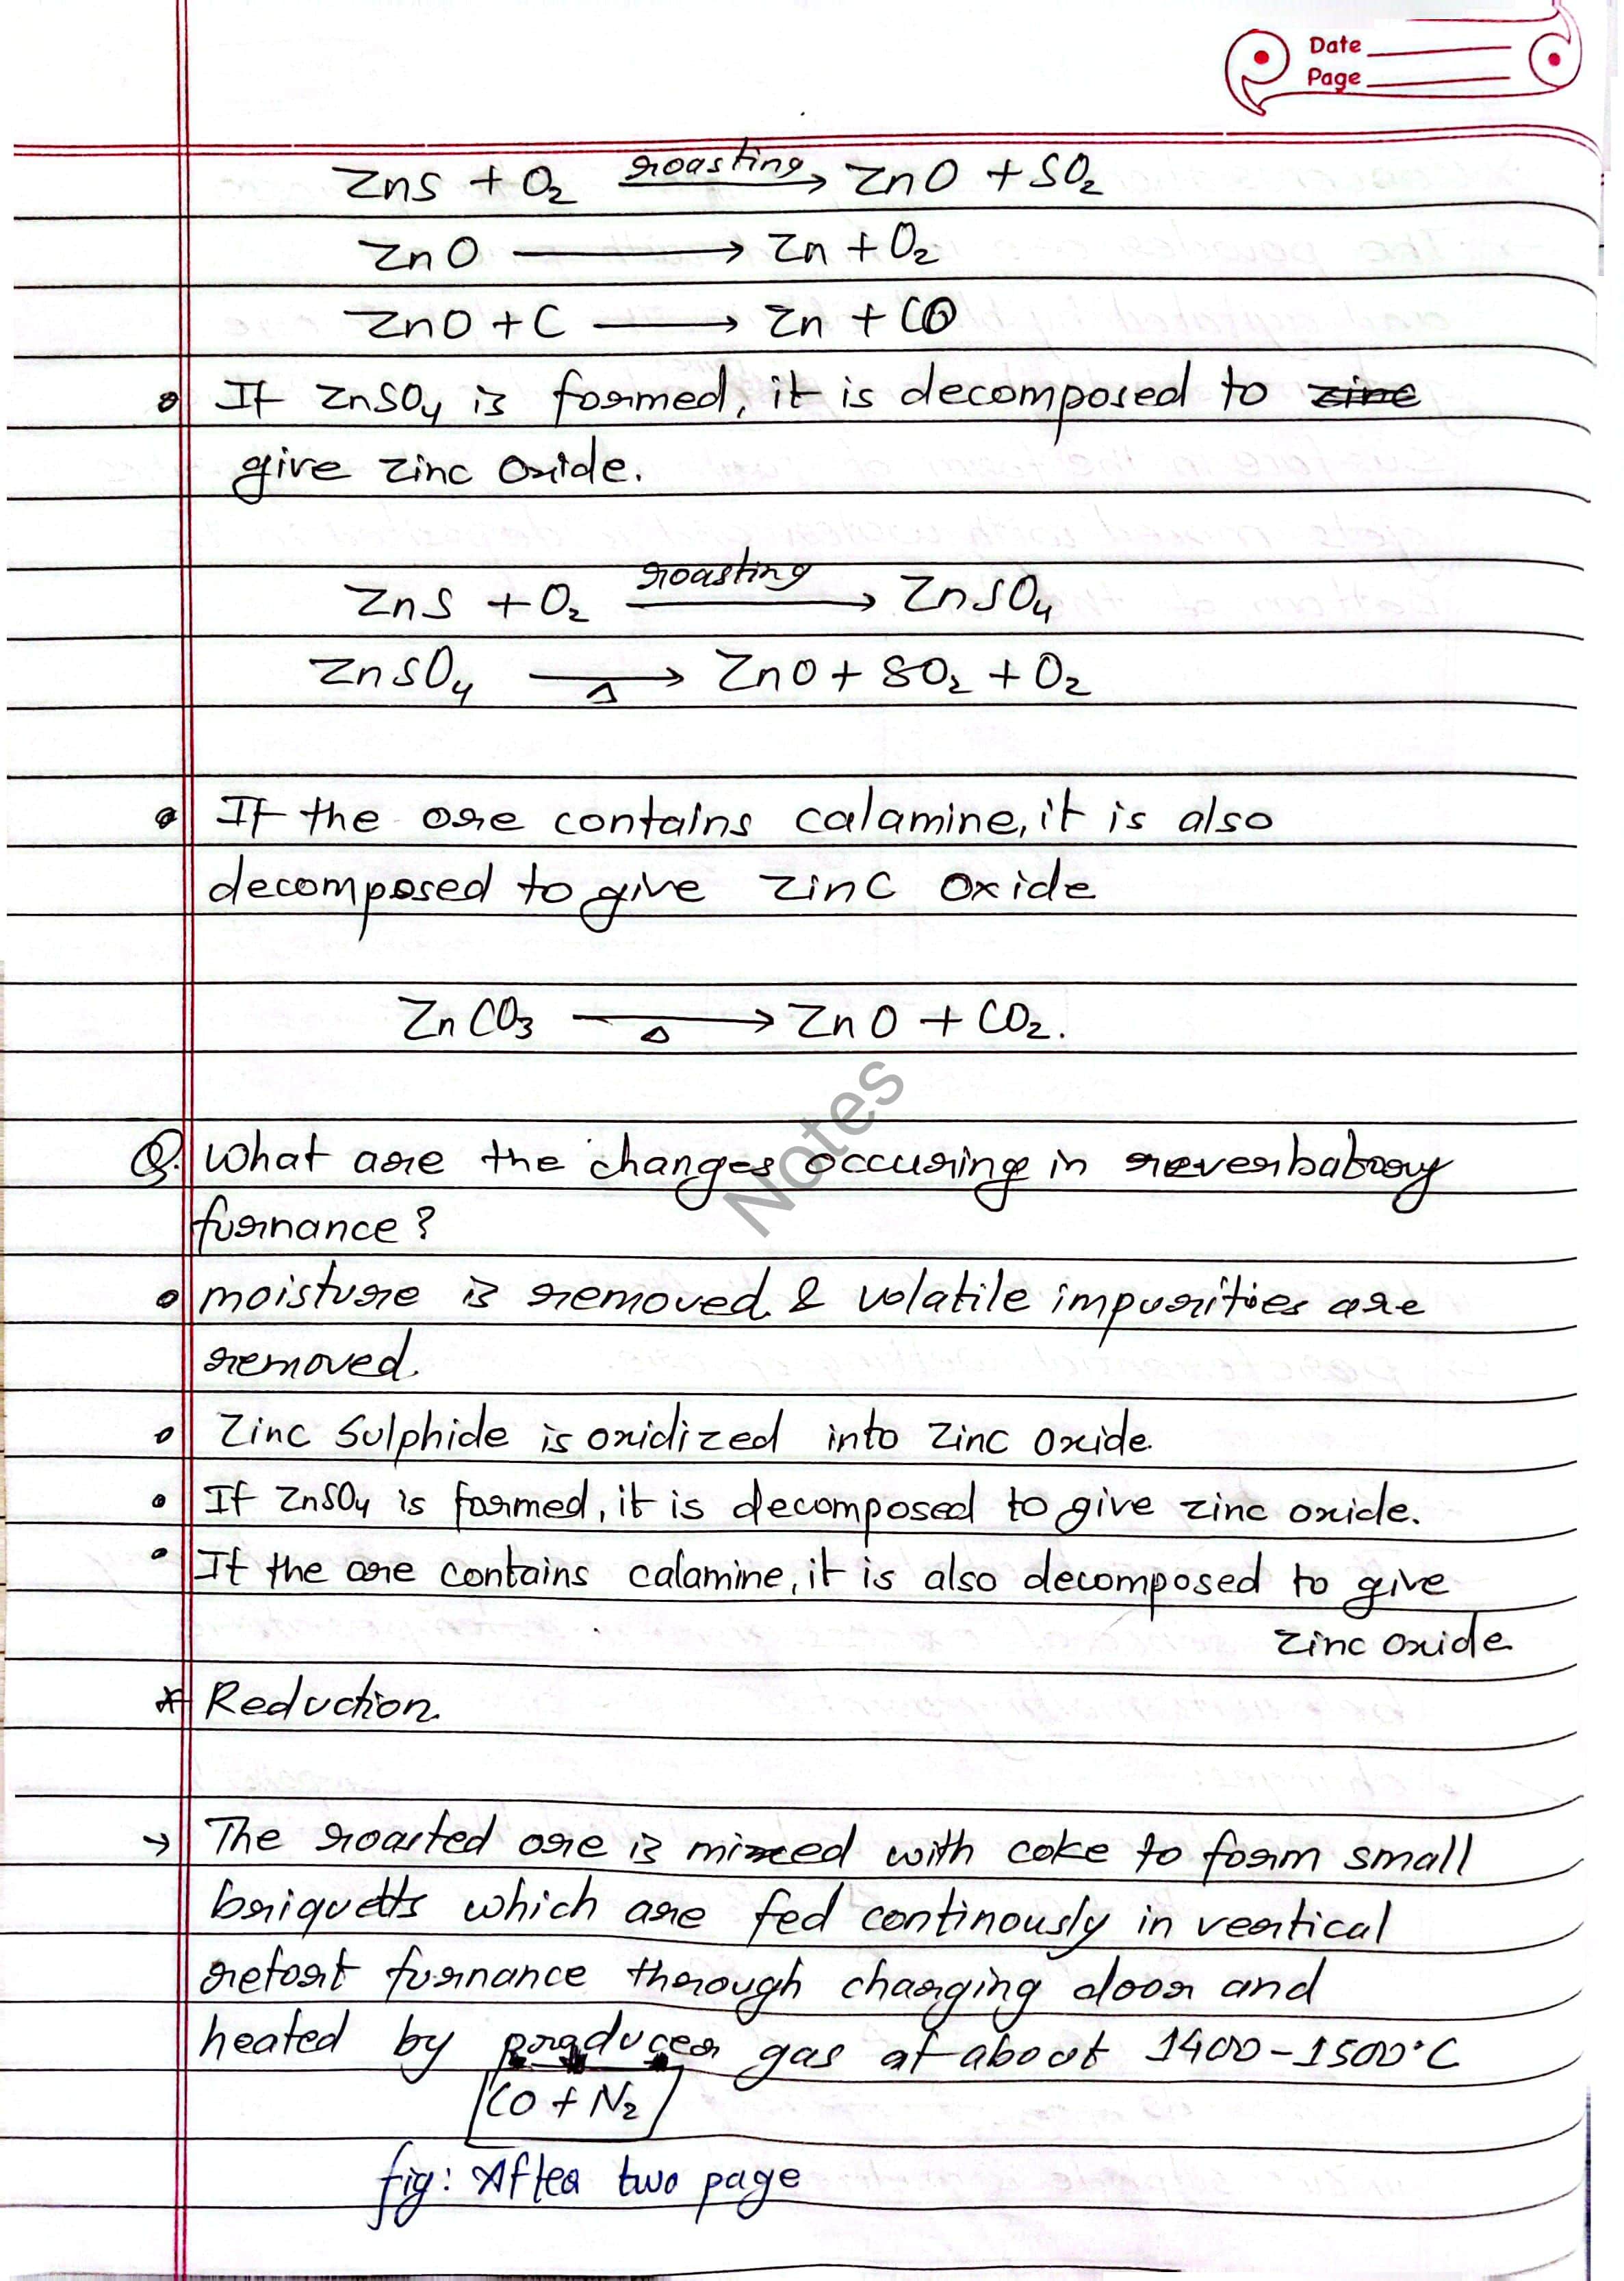 Date
Page
ZnS + O₂ roasting → ZnO + SO₂
ZnO → Zn + O₂
ZnO + C → Zn + CO
• If ZnSO₄ is formed, it is decomposed to zinc
give zinc oxide.
ZnS + O₂ roasting → ZnSO₄
ZnSO₄ →Δ ZnO + SO₂ + O₂
• If the ore contains calamine, it is also
decomposed to give zinc oxide
ZnCO₃ →Δ ZnO + CO₂.
Notes
Q. What are the changes occuring in reverbabory
furnance?
• moisture is removed & volatile impurities are
removed.
• Zinc Sulphide is oxidized into zinc oxide.
• If ZnSO₄ is formed, it is decomposed to give zinc oxide.
• If the ore contains calamine, it is also decomposed to give
zinc oxide
* Reduction.
→ The roasted ore is mixed with coke to form small
briquetts which are fed continously in vertical
retort furnance through charging door and
heated by producer gas at about 1400-1500°C
CO + N₂
fig: After two page